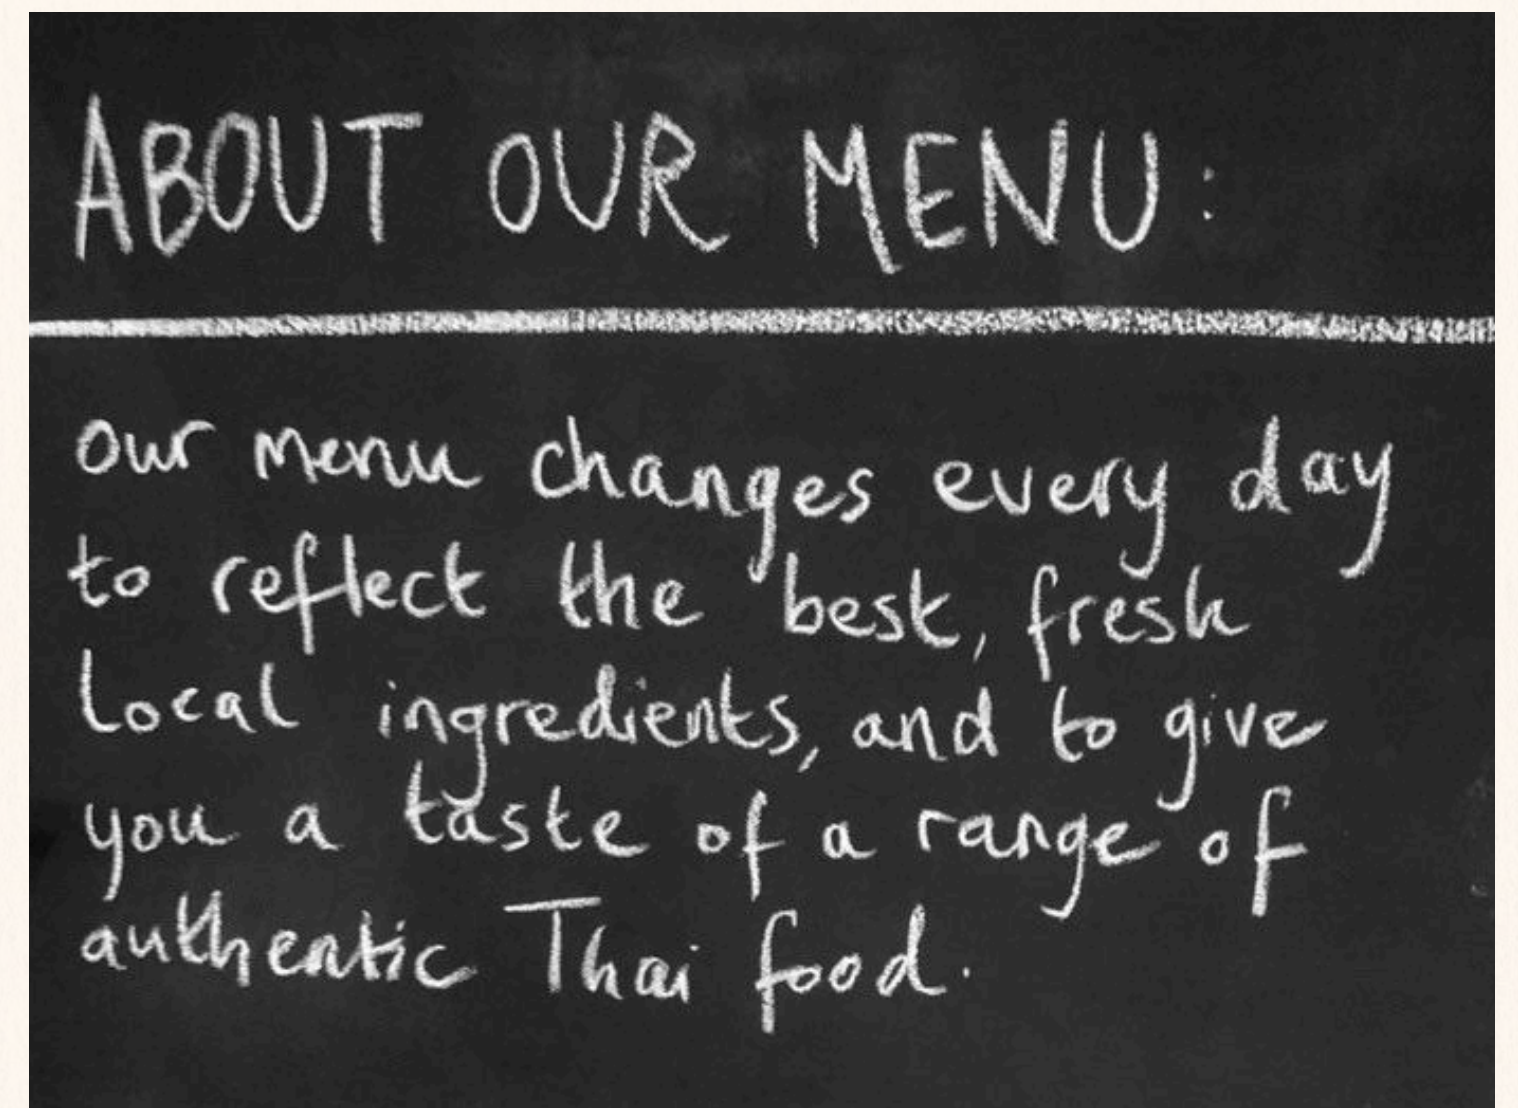 ABOUT OUR MENU:
our menu changes every day
to reflect the best, fresh
local ingredients, and to give
you a taste of a range of
authentic Thai food.